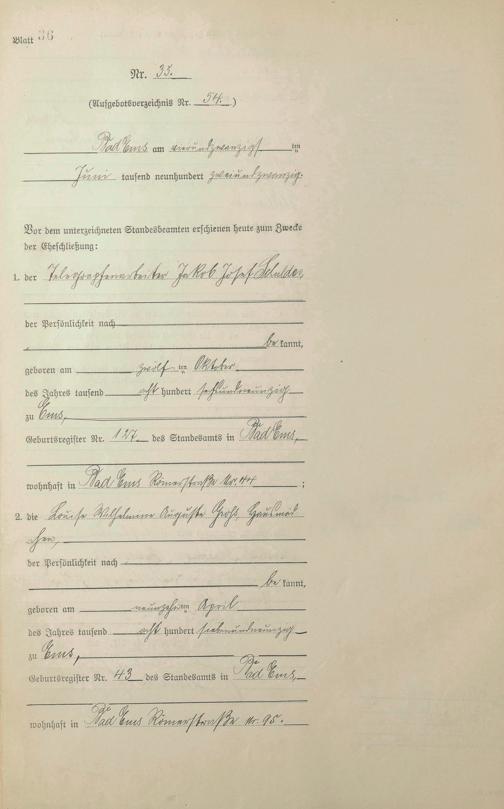 Blatt 36
Nr. 35.
(Aufgebotsverzeichnis Nr. 54.)
Bad Ems am vierundzwanzigsten
Juni tausend neunhundert zweiundzwanzig.
Vor dem unterzeichneten Standesbeamten erschienen heute zum Zwecke
der Eheschließung:
1. der Telegraphenarbeiter Jakob Josef
der Persönlichkeit nach
be kannt,
geboren am zwölften Oktober
des Jahres tausend acht hundert sechsundneunzig
zu Ems,
Geburtsregister Nr. 127 des Standesamts in Bad Ems,
wohnhaft in Bad Ems Römerstraße Nr. 44 ;
2. die Louise Wilhelmine Auguste Hausmäd
chen,
der Persönlichkeit nach
be kannt,
geboren am neunzehnten April
des Jahres tausend acht hundert siebenundneunzig
zu Ems,
Geburtsregister Nr. 43 des Standesamts in Bad Ems,
wohnhaft in Bad Ems Römerstraße Nr. 95.